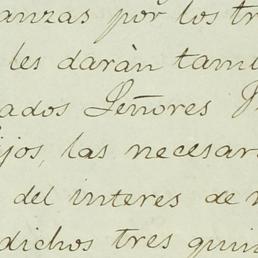 anzas por los tr
les daràn tamb
ados Señores
ijos, las necesar
del interes de
dichos tres quin